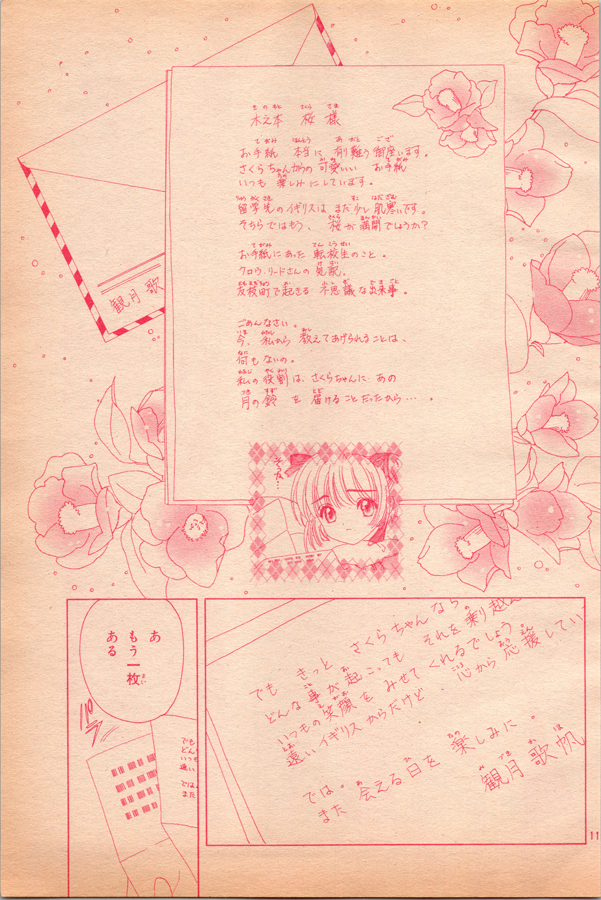 木之本 桜 様
お手紙 本当に 有り難う 御座います。
さくらちゃんからの 可愛いい お手紙
いつも 楽しみにしています。
留学先のイギリスは まだ少し 肌寒いです。
そちらではもう、桜が満開でしょうか?
お手紙にあった 転校生のこと。
クロウ・リードさんの 気配。
友枝町で起きる 不思議な出来事。
ごめんなさい。
今、私から 教えてあげられることは、
何もないの。
私の役割は、さくらちゃんに あの
月の鈴 を 届けることだったから…。
観月 歌
そんな…
でも きっと さくらちゃんなら。
どんな 事が 起こっても それを 乗り越え
いつもの 笑顔を みせて くれるでしょう
遠い イギリスからだけど、心から 応援してい
では。
また 会える 日を 楽しみに。
観月 歌帆
あ
もう一枚
ある
でも
どん
いつも
遠い
では。
また
11